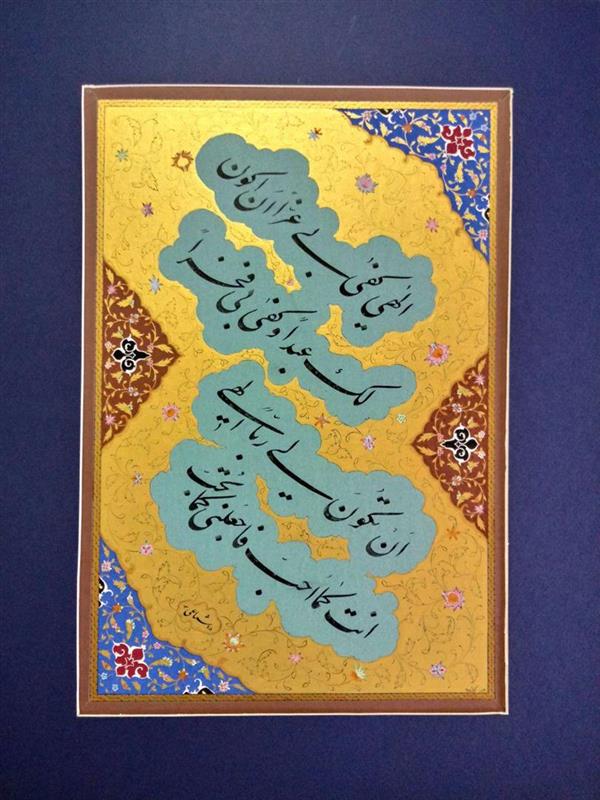 الهی کفی بی عزا ان اکون
لک عبدا و کفی بی فخرا
ان تکون لی ربا
انت کما احب فاجعلنی کما تحب